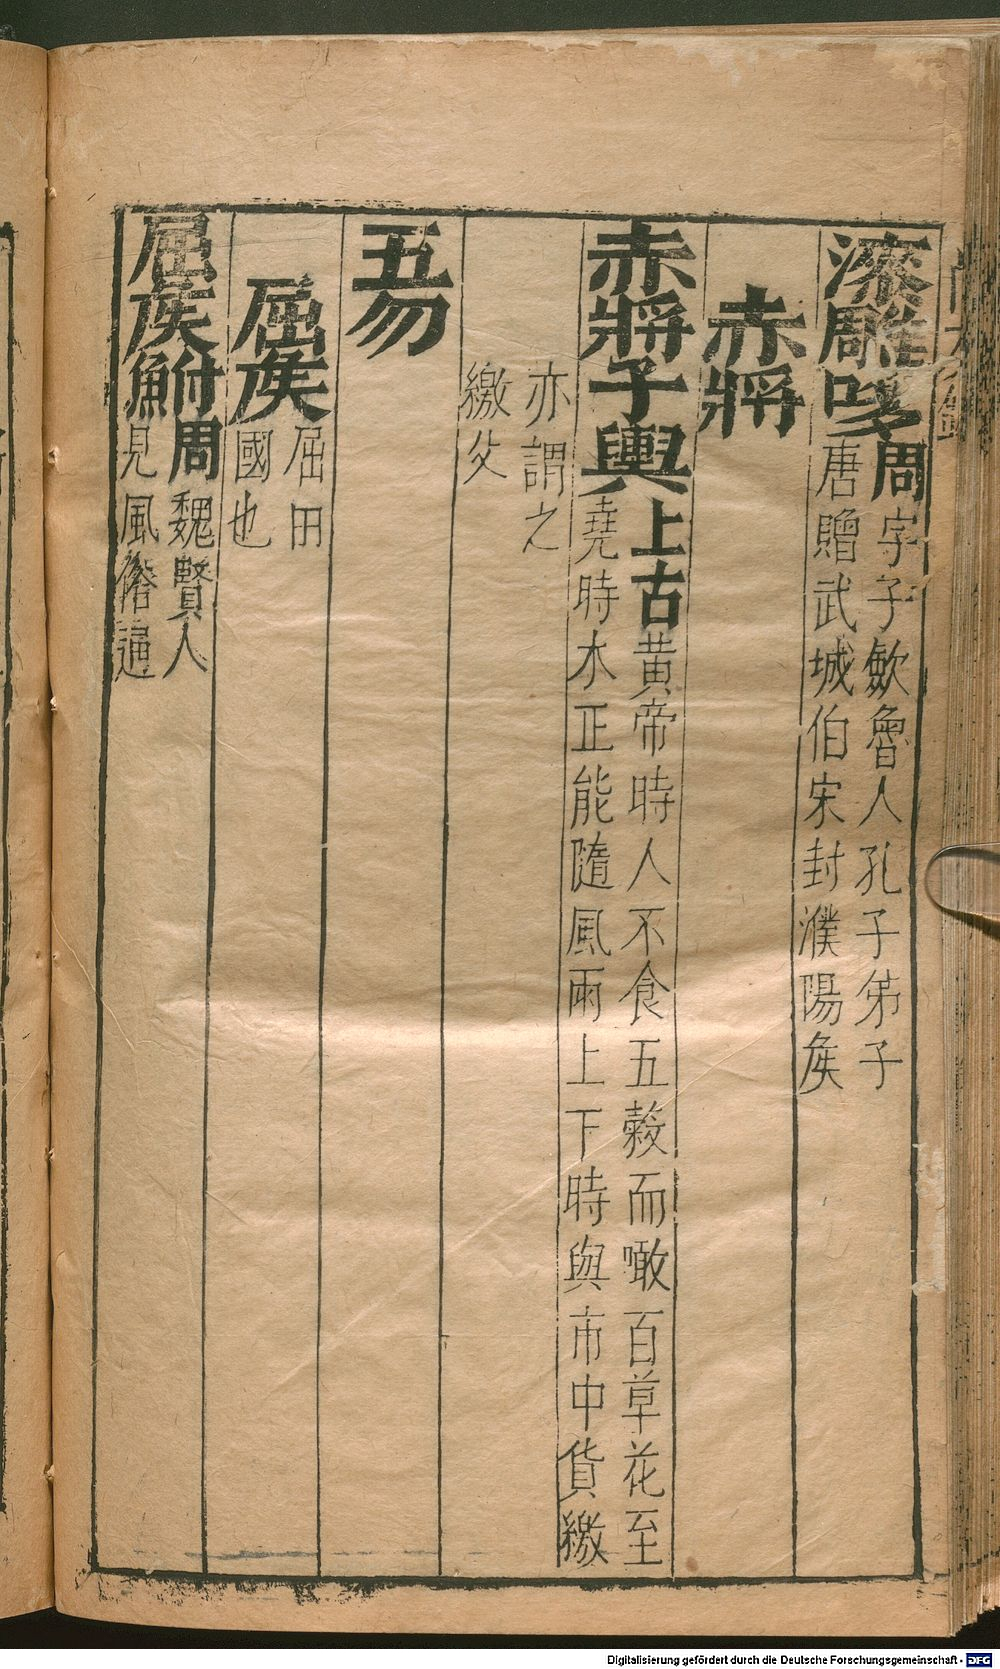 漆雕哆周字子歛魯人孔子弟子
唐贈武城伯宋封濮陽矦
赤將
赤將子輿上古黃帝時人不食五穀而噉百草花至
堯時木正能隨風雨上下時與市中貨繳
亦謂之
繳父
五勿
屈矦屈田
國也
屈矦鮒周魏賢人
見風俗通
Digitalisierung gefördert durch die Deutsche Forschungsgemeinschaft - DFG